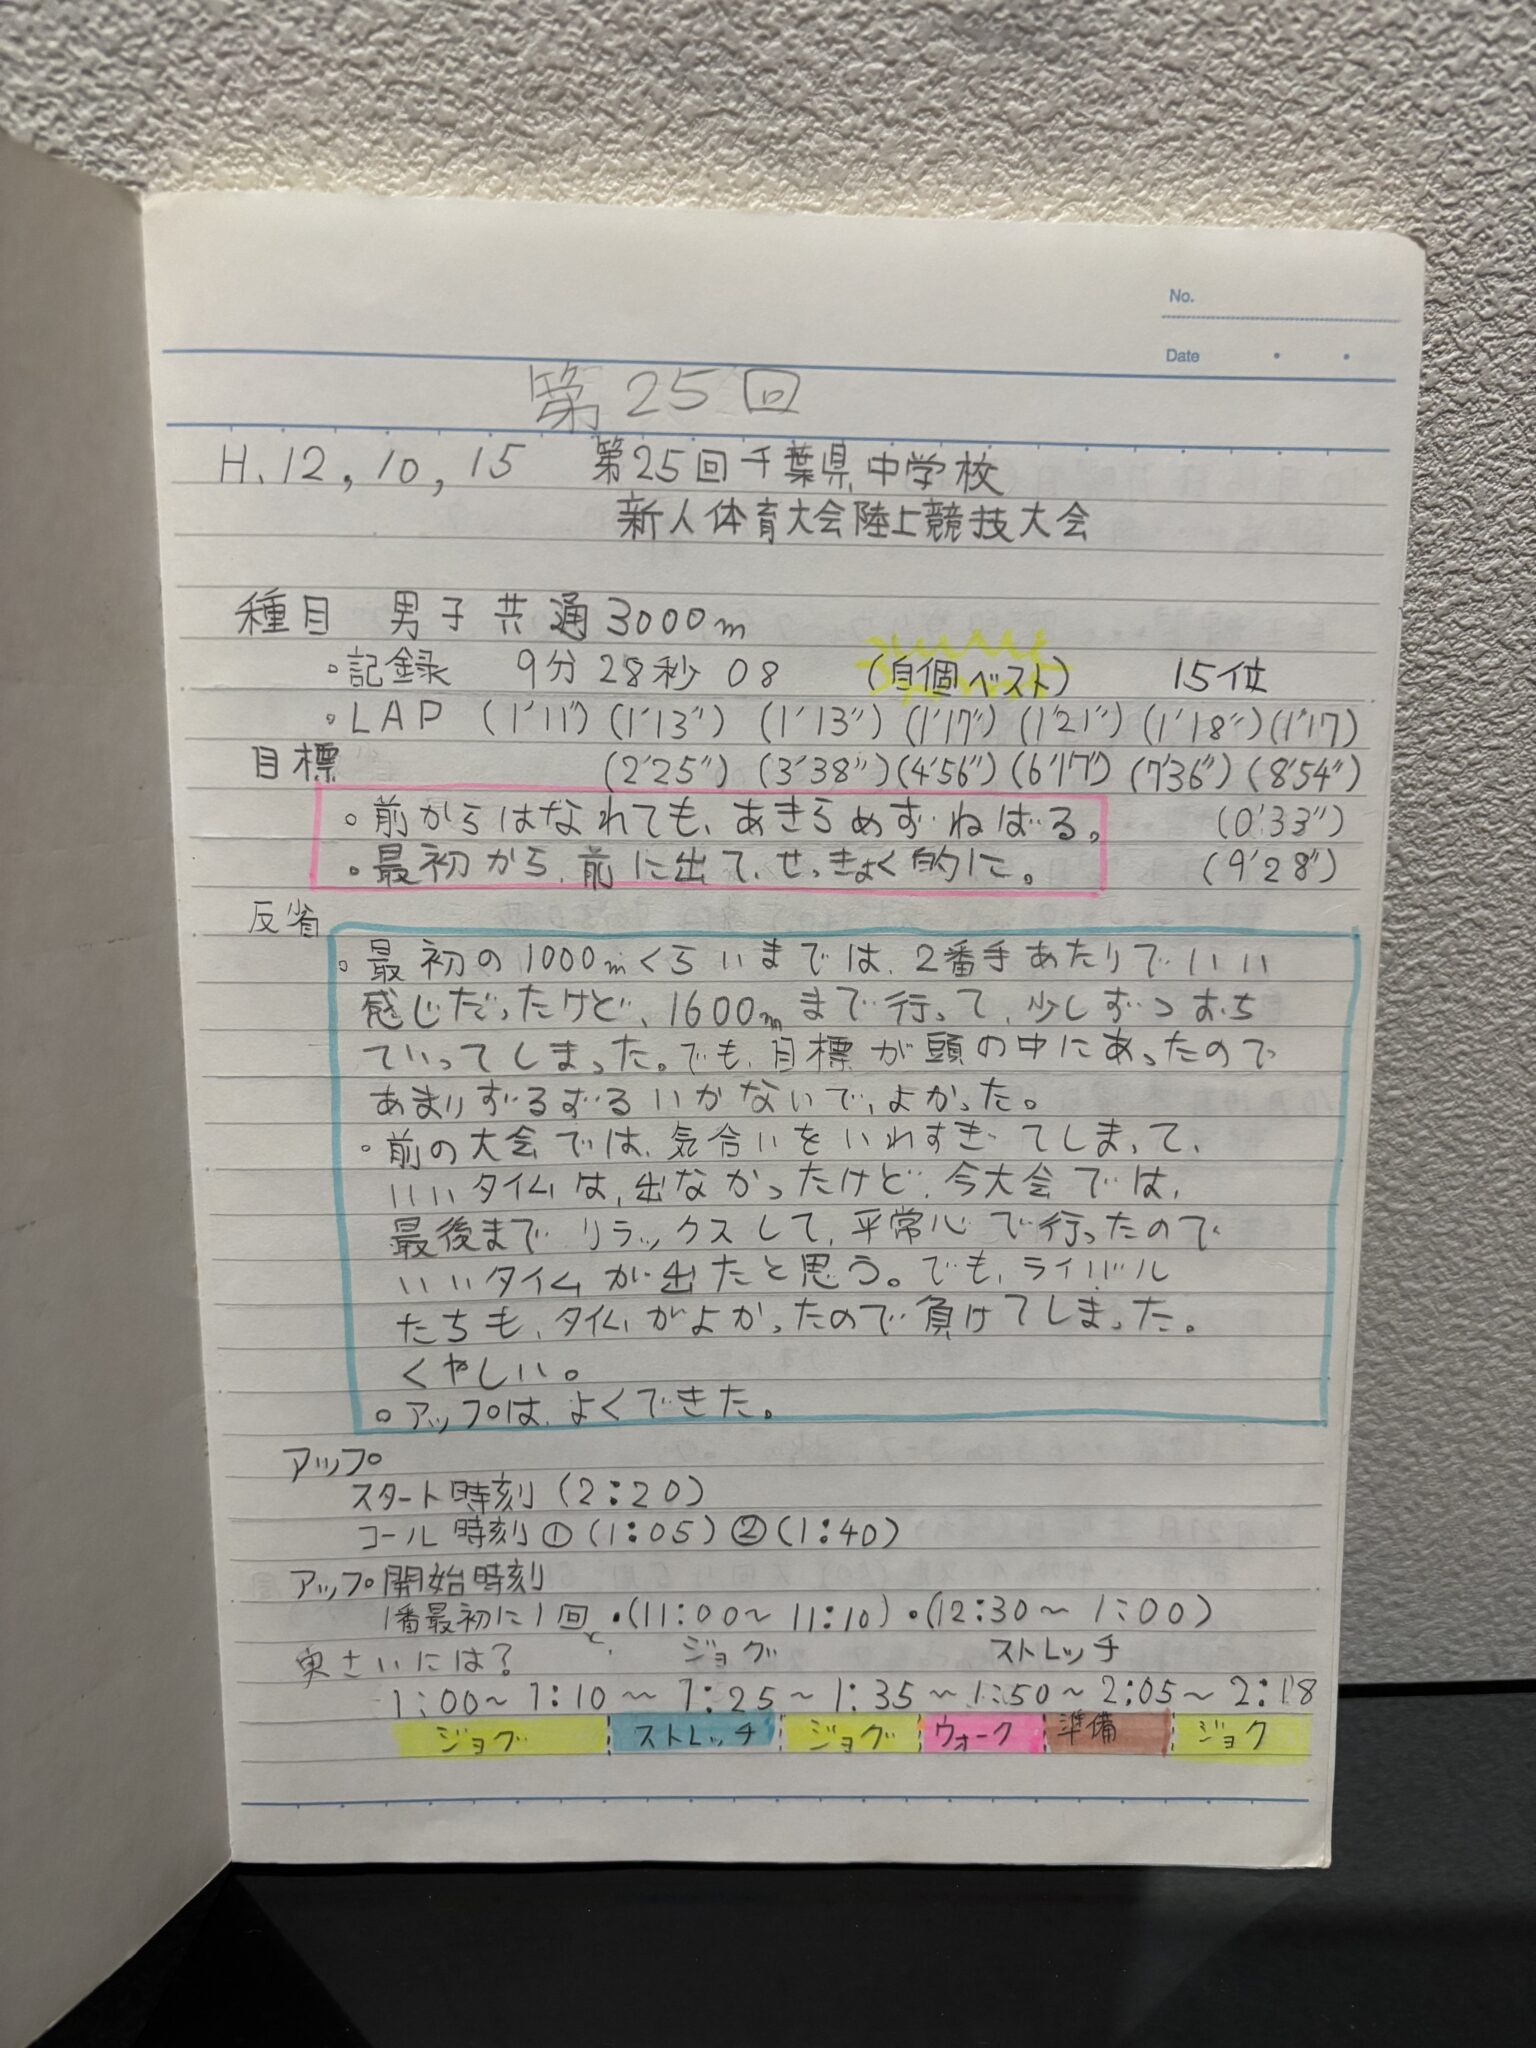 No.
Date
第25回
H.12,10,15 第25回千葉県中学校
新人体育大会陸上競技大会
種目 男子共通3000m
・記録 9分28秒08 (自個ベスト) 15位
・LAP (1'11") (1'13") (1'13") (1'17") (1'21") (1'18") (1'17)
目標 (2'25") (3'38") (4'56") (6'17") (7'36") (8'54")
・前からはなれても、あきらめずねばる。 (0'33")
・最初から、前に出て、せっきょく的に。 (9'28")
反省
・最初の1000mくらいまでは、2番手あたりでいい
感じだったけど、1600mまで行って、少しずつおち
ていってしまった。でも、目標が頭の中にあったので
あまりずるずるいかないで、よかった。
・前の大会では、気合いをいれすぎてしまって、
いいタイムは、出なかったけど、今大会では、
最後までリラックスして、平常心で行ったので
いいタイムが出たと思う。でも、ライバル
たちも、タイムがよかったので負けてしまった。
くやしい。
・アップは、よくできた。
アップ
スタート時刻(2:20)
コール時刻①(1:05)②(1:40)
アップ開始時刻
1番最初に1回・(11:00〜11:10)・(12:30〜1:00)
実さいには? ジョグ ストレッチ
1:00〜1:10〜1:25〜1:35〜1:50〜2:05〜2:18
ジョグ ストレッチ ジョグ ウォーク 準備 ジョグ